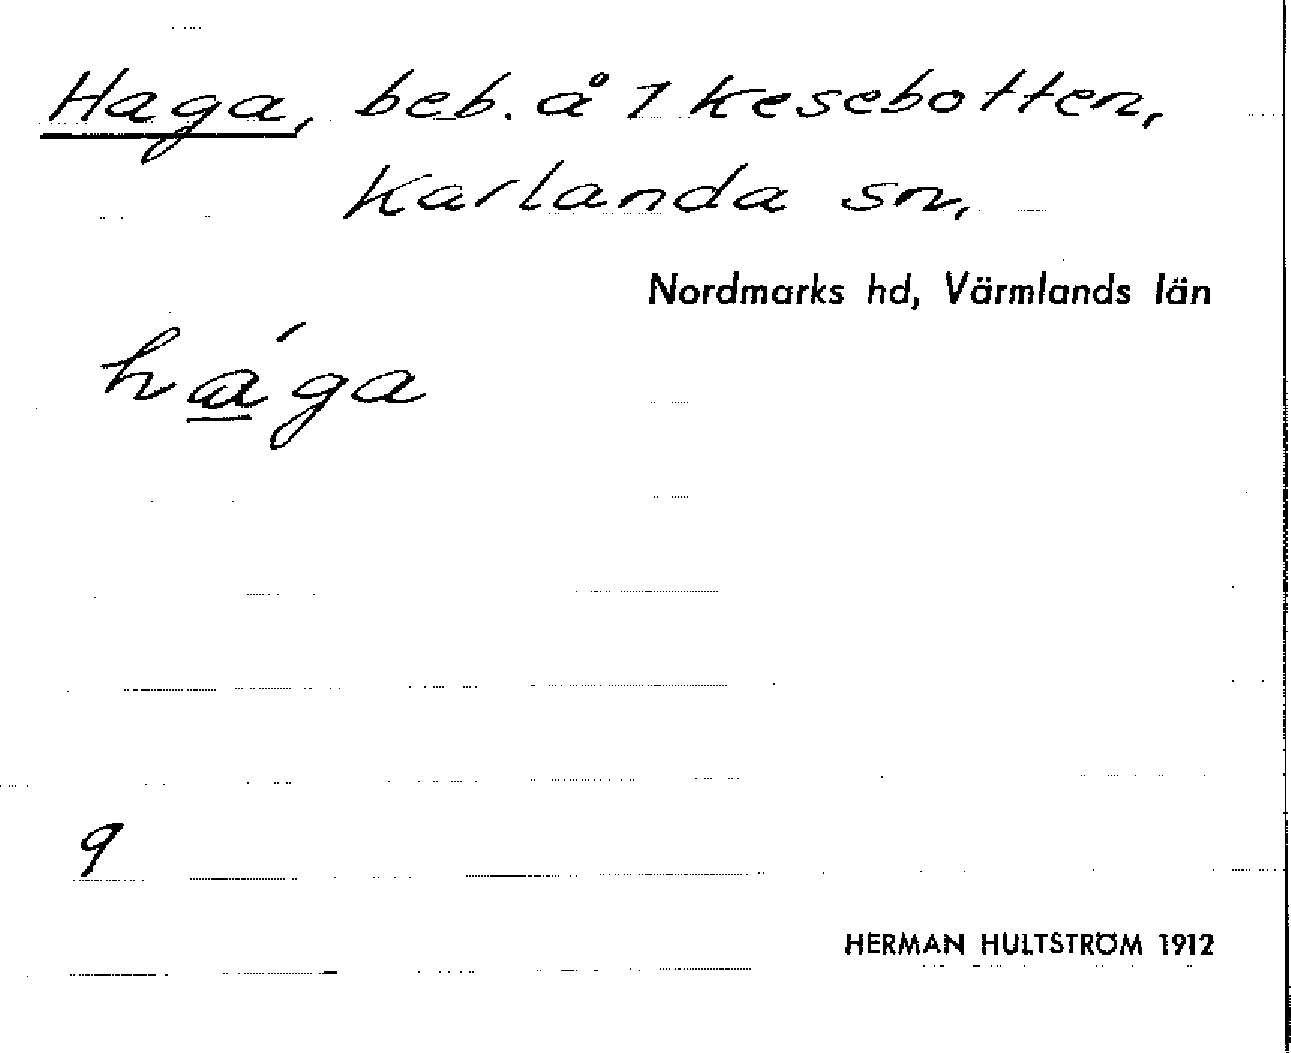 Haga, beb. å 1 Kesebotten,
Karlanda sn.
Nordmarks hd, Värmlands län
ha̲´ga
9
HERMAN HULTSTRÖM 1912